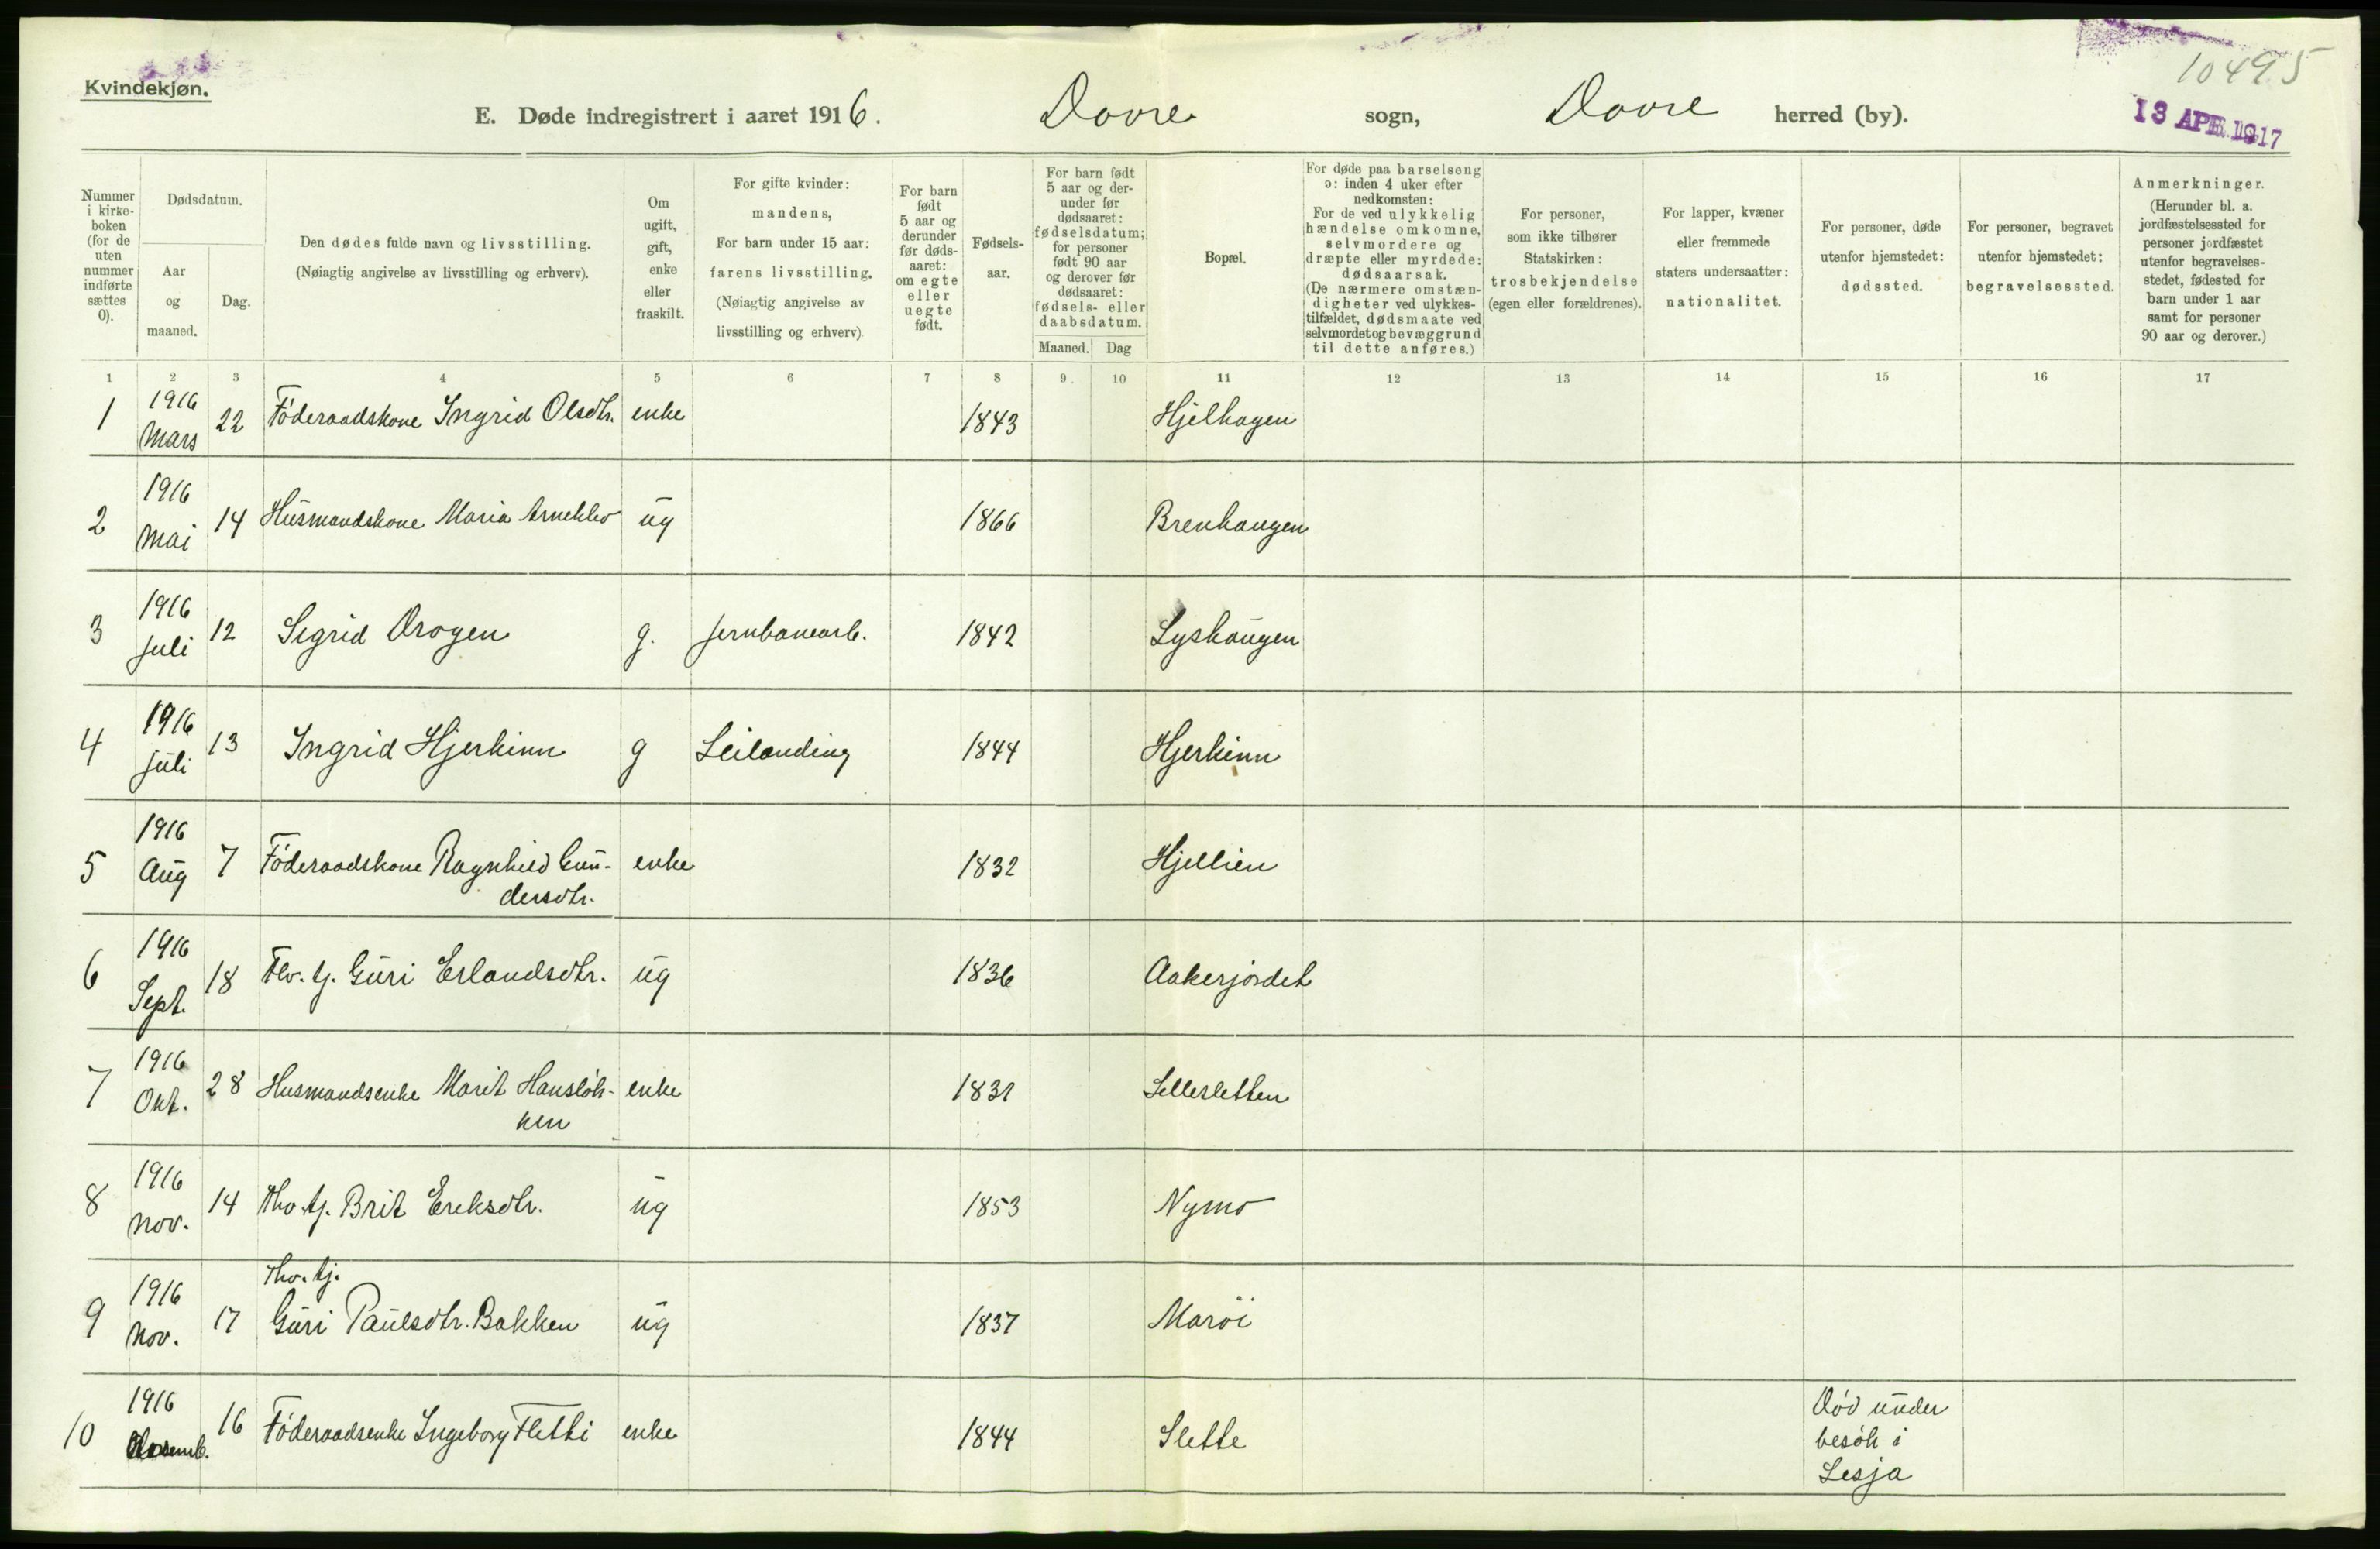 10495
Kvindekjøn.
E. Døde indregistrert i aaret 1916. Dovre sogn, Dovre herred (by).
13 APR. 1917
Nummer i kirke-boken (for de uten nummer indførte sættes 0).
Dødsdatum.
Aar og maaned.
Dag.
Den dødes fulde navn og livsstilling.
(Nøiagtig angivelse av livsstilling og erhverv).
Om ugift, gift, enke eller fraskilt.
For gifte kvinder: mandens,
For barn under 15 aar: farens livsstilling.
(Nøiagtig angivelse av livsstilling og erhverv).
For barn født 5 aar og derunder før døds-aaret: om egte eller uegte født.
Fødsels-aar.
For barn født 5 aar og der-under før dødsaaret: fødselsdatum; for personer født 90 aar og derover før dødsaaret: fødsels- eller daabsdatum.
Maaned. Dag
Bopæl.
For døde paa barselseng ɔ: inden 4 uker efter nedkomsten:
For de ved ulykkelig hændelse omkomne, selvmordere og dræpte eller myrdede: dødsaarsak.
(De nærmere omstæn-digheter ved ulykkes-tilfældet, dødsmaate ved selvmordet og bevæggrund til dette anføres.)
For personer, som ikke tilhører Statskirken: trosbekjendelse (egen eller forældrenes).
For lapper, kvæner eller fremmede staters undersaatter: nationalitet.
For personer, døde utenfor hjemstedet: dødssted.
For personer, begravet utenfor hjemstedet: begravelsessted.
Anmerkninger.
(Herunder bl. a. jordfæstelsessted for personer jordfæstet utenfor begravelses-stedet, fødested for barn under 1 aar samt for personer 90 aar og derover.)
1 2 3 4 5 6 7 8 9. 10 11 12 13 14 15 16 17
1 1916 Mars 22 Föderaadskone Ingrid Olsdtr. enke 1843 Hjelhagen
2 1916 Mai 14 Husmandskone Maria ug 1866 Brenhaugen
3 1916 Juli 12 Sigrid Drogen g. Jernbanearb. 1842 Lyshaugen
4 1916 Juli 13 Ingrid Hjerkinn g Leilending 1844 Hjerkinn
5 1916 Aug 7 Föderaadskone Ragnhild Gun-
dersdtr. enke 1832 Hjellien
6 1916 Sept. 18 Guri Erlandsdtr. ug 1836 Aakerjordet
7 1916 Okt. 28 Husmandsenke Marit Hanslök-
ken enke 1831 Lillesletten
8 1916 Nov. 14 Fhv. tj. Brit Eriksdtr. ug 1853 Nymo
9 1916 Nov. 17 Fhv. tj.
Guri Paulsdtr. Bakken ug 1837 Maröi
10 1916 16 Föderaadsenke Ingeborg Fletti enke 1844 Slette Död under
besök i
Lesja